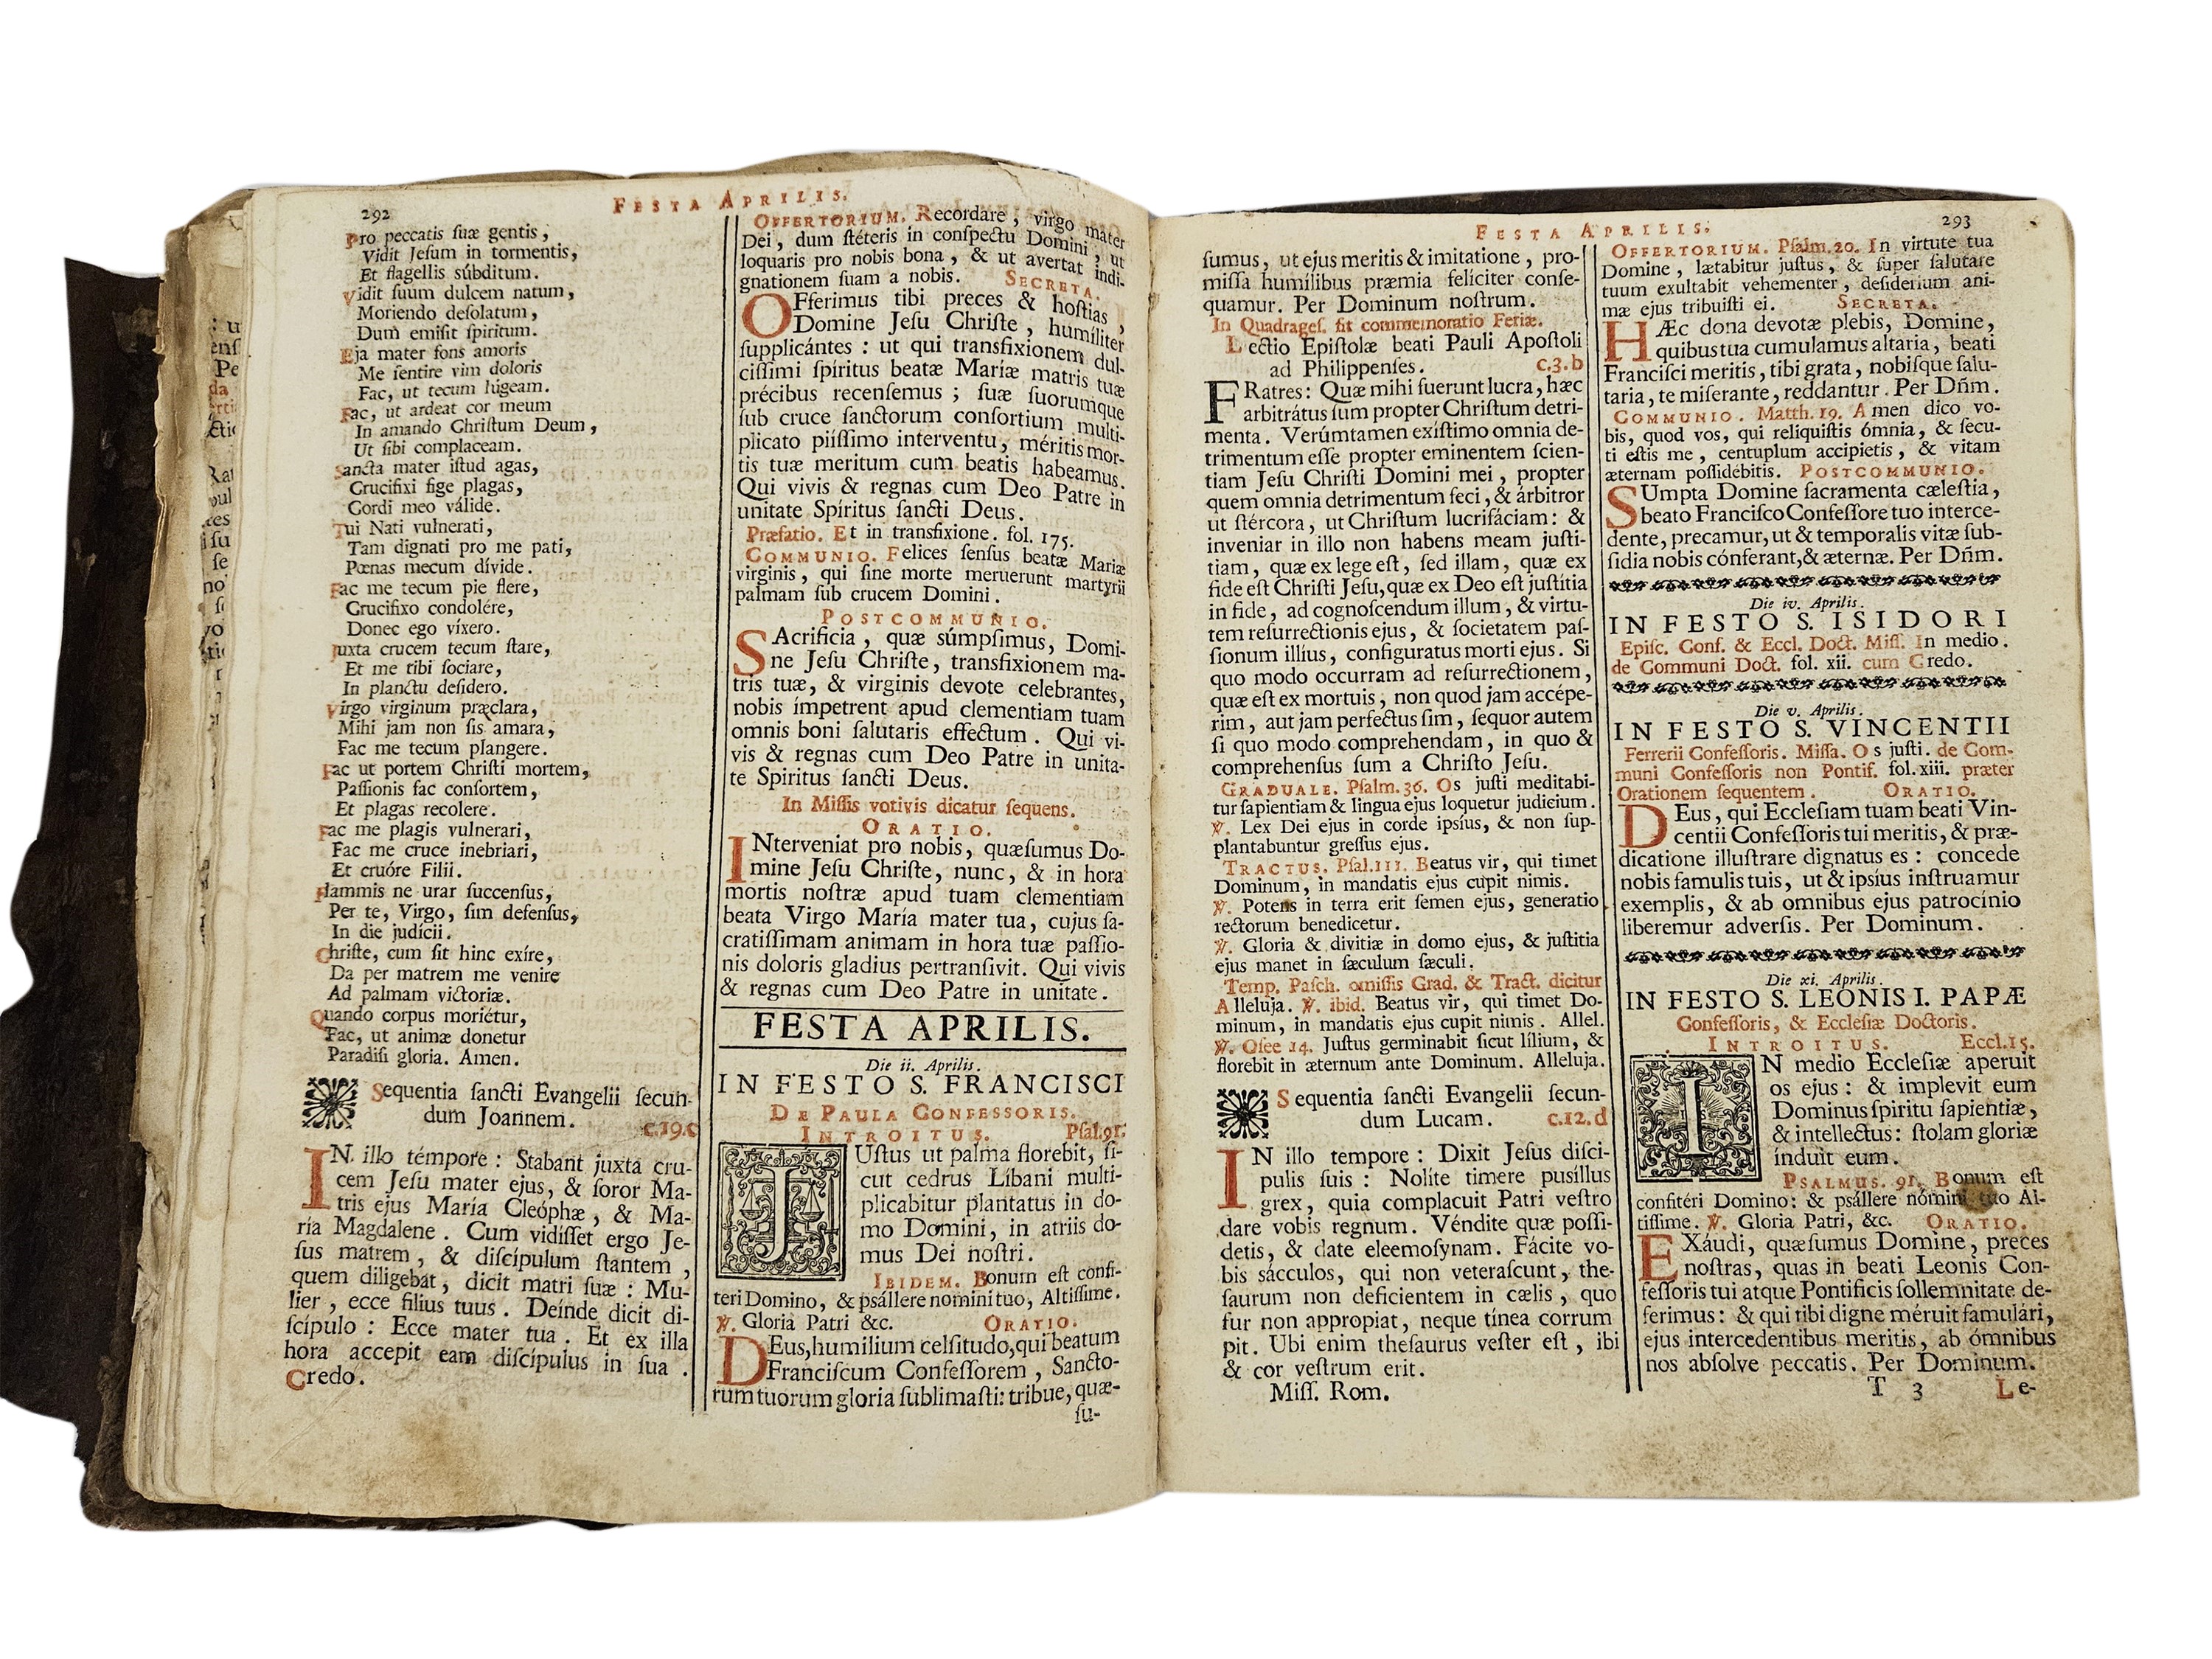 292
FESTA APRILIS.
Pro peccatis ſuæ gentis,
Vidit Jeſum in tormentis,
Et flagellis súbditum.
Vidit ſuum dulcem natum,
Moriendo deſolatum,
Dum emiſit ſpiritum.
Eja mater fons amoris
Me ſentire vim doloris
Fac, ut tecum lúgeam.
Fac, ut ardeat cor meum
In amando Chriſtum Deum,
Ut ſibi complaceam.
Sancta mater iſtud agas,
Crucifixi fige plagas,
Cordi meo válide.
Tui Nati vulnerati,
Tam dignati pro me pati,
Pœnas mecum dívide.
Fac me tecum pie flere,
Crucifixo condolére,
Donec ego víxero.
Juxta crucem tecum ſtare,
Et me tibi ſociare,
In planctu deſidero.
Virgo virginum præclara,
Mihi jam non ſis amara,
Fac me tecum plangere.
Fac ut portem Chriſti mortem,
Paſſionis fac conſortem,
Et plagas recolere.
Fac me plagis vulnerari,
Fac me cruce inebriari,
Et cruóre Filii.
Flammis ne urar ſuccenſus,
Per te, Virgo, ſim defenſus,
In die judícii.
Chriſte, cum ſit hinc exíre,
Da per matrem me venire
Ad palmam victoriæ.
Quando corpus moriétur,
Fac, ut animæ donetur
Paradiſi gloria. Amen.
Sequentia ſancti Evangelii ſecun-
dum Joannem. c.19.c
IN illo témpore: Stabant juxta cru-
cem Jeſu mater ejus, & ſoror Ma-
tris ejus María Cleóphæ, & Ma-
ría Magdalene. Cum vidiſſet ergo Je-
ſus matrem, & diſcípulum ſtantem,
quem diligebat, dicit matri ſuæ: Mu-
lier, ecce filius tuus. Deínde dicit di-
ſcípulo: Ecce mater tua. Et ex illa
hora accepit eam diſcipulus in ſua.
Credo.
OFFERTORIUM. Recordare, virgo mater
Dei, dum ſtéteris in conſpectu Domini, ut
loquaris pro nobis bona, & ut avertat indi-
gnationem ſuam a nobis. SECRETA.
OFferimus tibi preces & hoſtias,
Domine Jeſu Chriſte, humíliter
ſupplicántes: ut qui transfixionem dul-
ciſſimi ſpíritus beatæ Maríæ matris tuæ
précibus recenſemus; ſuæ ſuorumque
ſub cruce ſanctorum conſortium multi-
plicato piiſſimo interventu, méritis mor-
tis tuæ meritum cum beatis habeamus.
Qui vivis & regnas cum Deo Patre in
unitate Spíritus ſancti Deus.
Præfatio. Et in transfixione. fol. 175.
COMMUNIO. Felices ſenſus beatæ Mariæ
virginis, qui ſine morte meruerunt martyrii
palmam ſub crucem Domini.
POSTCOMMUNIO.
SAcrificia, quæ súmpſimus, Domi-
ne Jeſu Chriſte, transfixionem ma-
tris tuæ, & virginis devote celebrantes,
nobis ímpetrent apud clementiam tuam
omnis boni ſalutaris effectum. Qui vi-
vis & regnas cum Deo Patre in unita-
te Spiritus ſancti Deus.
In Miſſis votivis dicatur ſequens.
ORATIO.
INterveniat pro nobis, quæſumus Do-
mine Jeſu Chriſte, nunc, & in hora
mortis noſtræ apud tuam clementiam
beata Virgo María mater tua, cujus ſa-
cratiſſimam animam in hora tuæ paſſio-
nis doloris gladius pertransivit. Qui vivis
& regnas cum Deo Patre in unitate.
FESTA APRILIS.
Die ii. Aprilis.
IN FESTO S. FRANCISCI
DE PAULA CONFESSORIS.
INTROITUS. Pſal.91.
JUſtus ut palma florebit, ſi-
cut cedrus Líbani multi-
plicabitur plantatus in do-
mo Domini, in atriis do-
mus Dei noſtri.
IBIDEM. Bonum eſt confi-
teri Domino, & pſállere nomini tuo, Altiſſime.
℣. Gloria Patri &c. ORATIO.
DEus, humilium celſitudo, qui beatum
Franciſcum Confeſſorem, Sancto-
rum tuorum gloria ſublimaſti: tribue, quæ-
ſu-
FESTA APRILIS.
293
ſumus, ut ejus meritis & imitatione, pro-
miſſa humílibus præmia feliciter conſe-
quamur. Per Dominum noſtrum.
In Quadrageſ. fit commemoratio Feriæ.
Lectio Epiſtolæ beati Pauli Apoſtoli
ad Philippenſes. c.3.b
FRatres: Quæ mihi fuerunt lucra, hæc
arbitrátus ſum propter Chriſtum detri-
menta. Verúmtamen exíſtimo omnia de-
trimentum eſſe propter eminentem ſcien-
tiam Jeſu Chriſti Domini mei, propter
quem omnia detrimentum feci, & árbitror
ut ſtércora, ut Chriſtum lucrifáciam: &
inveniar in illo non habens meam juſti-
tiam, quæ ex lege eſt, ſed illam, quæ ex
fide eſt Chriſti Jeſu, quæ ex Deo eſt juſtítia
in fide, ad cognoſcendum illum, & virtu-
tem reſurrectionis ejus, & ſocietatem paſ-
ſionum illíus, configuratus morti ejus. Si
quo modo occurram ad reſurrectionem,
quæ eſt ex mortuis, non quod jam accépe-
rim, aut jam perfectus ſim, ſequor autem
ſi quo modo comprehendam, in quo &
comprehenſus ſum a Chriſto Jeſu.
GRADUALE. Pſalm.36. Os juſti meditabi-
tur ſapientiam & lingua ejus loquetur judicium.
℣. Lex Dei ejus in corde ipſíus, & non ſup-
plantabuntur greſſus ejus.
TRACTUS. Pſal.111. Beatus vir, qui timet
Dominum, in mandatis ejus cupit nimis.
℣. Potens in terra erit ſemen ejus, generatio
rectorum benedicetur.
℣. Gloria & divitiæ in domo ejus, & juſtitia
ejus manet in ſæculum ſæculi.
Temp. Paſch. omiſſis Grad. & Tract. dicitur
Alleluja. ℣. ibid. Beatus vir, qui timet Do-
minum, in mandatis ejus cupit nimis. Allel.
℣. Oſee 14. Juſtus germinabit ſicut lílium, &
florebit in æternum ante Dominum. Alleluja.
Sequentia ſancti Evangelii ſecun-
dum Lucam. c.12.d
IN illo tempore: Dixit Jeſus diſci-
pulis ſuis: Nolíte timere puſíllus
grex, quia complacuit Patri veſtro
dare vobis regnum. Véndite quæ poſſi-
detis, & date eleemoſynam. Fácite vo-
bis sácculos, qui non veteraſcunt, the-
ſaurum non deficientem in cælis, quo
fur non appropiat, neque tínea corrum
pit. Ubi enim theſaurus veſter eſt, ibi
& cor veſtrum erit.
Miſſ. Rom.
OFFERTORIUM. Pſalm.20. In virtute tua
Domine, lætabitur juſtus, & ſuper ſalutare
tuum exultabit vehementer, deſiderium ani-
mæ ejus tribuiſti ei. SECRETA.
HÆc dona devotæ plebis, Domine,
quibus tua cumulamus altaria, beati
Franciſci meritis, tibi grata, nobiſque ſalu-
taria, te miſerante, reddantur. Per Dñm.
COMMUNIO. Matth.19. Amen dico vo-
bis, quod vos, qui reliquiſtis ómnia, & ſecu-
ti eſtis me, centuplum accipietis, & vitam
æternam poſſidébitis. POSTCOMMUNIO.
SUmpta Domine ſacramenta cæleſtia,
beato Franciſco Confeſſore tuo interce-
dente, precamur, ut & temporalis vitæ ſub-
ſidia nobis cónferant, & æternæ. Per Dñm.
Die iv. Aprilis.
IN FESTO S. ISIDORI
Epiſc. Conf. & Eccl. Doct. Miſſ. In medio.
de Communi Doct. fol. xii. cum Credo.
Die v. Aprilis.
IN FESTO S. VINCENTII
Ferrerii Confeſſoris. Miſſa. Os juſti. de Com-
muni Confeſſoris non Pontif. fol. xiii. præter
Orationem ſequentem. ORATIO.
DEus, qui Eccleſiam tuam beati Vin-
centii Confeſſoris tui meritis, & præ-
dicatione illuſtrare dignatus es: concede
nobis famulis tuis, ut & ipsíus inſtruamur
exemplis, & ab omnibus ejus patrocínio
liberemur adverſis. Per Dominum.
Die xi. Aprilis.
IN FESTO S. LEONIS I. PAPÆ
Confeſſoris, & Eccleſiæ Doctoris.
INTROITUS. Eccl.15.
IN medio Eccleſiæ aperuit
os ejus: & implevit eum
Dominus ſpiritu ſapientiæ,
& intellectus: ſtolam gloriæ
índuit eum.
PSALMUS. 91. Bonum eſt
confitéri Domino: & pſállere nómini tuo Al-
tiſſime. ℣. Gloria Patri, &c. ORATIO.
EXáudi, quæſumus Domine, preces
noſtras, quas in beati Leonis Con-
feſſoris tui atque Pontificis ſollemnitate de-
ferimus: & qui tibi digne méruit famulári,
ejus intercedentibus meritis, ab ómnibus
nos abſolve peccatis. Per Dominum.
T 3 Le-